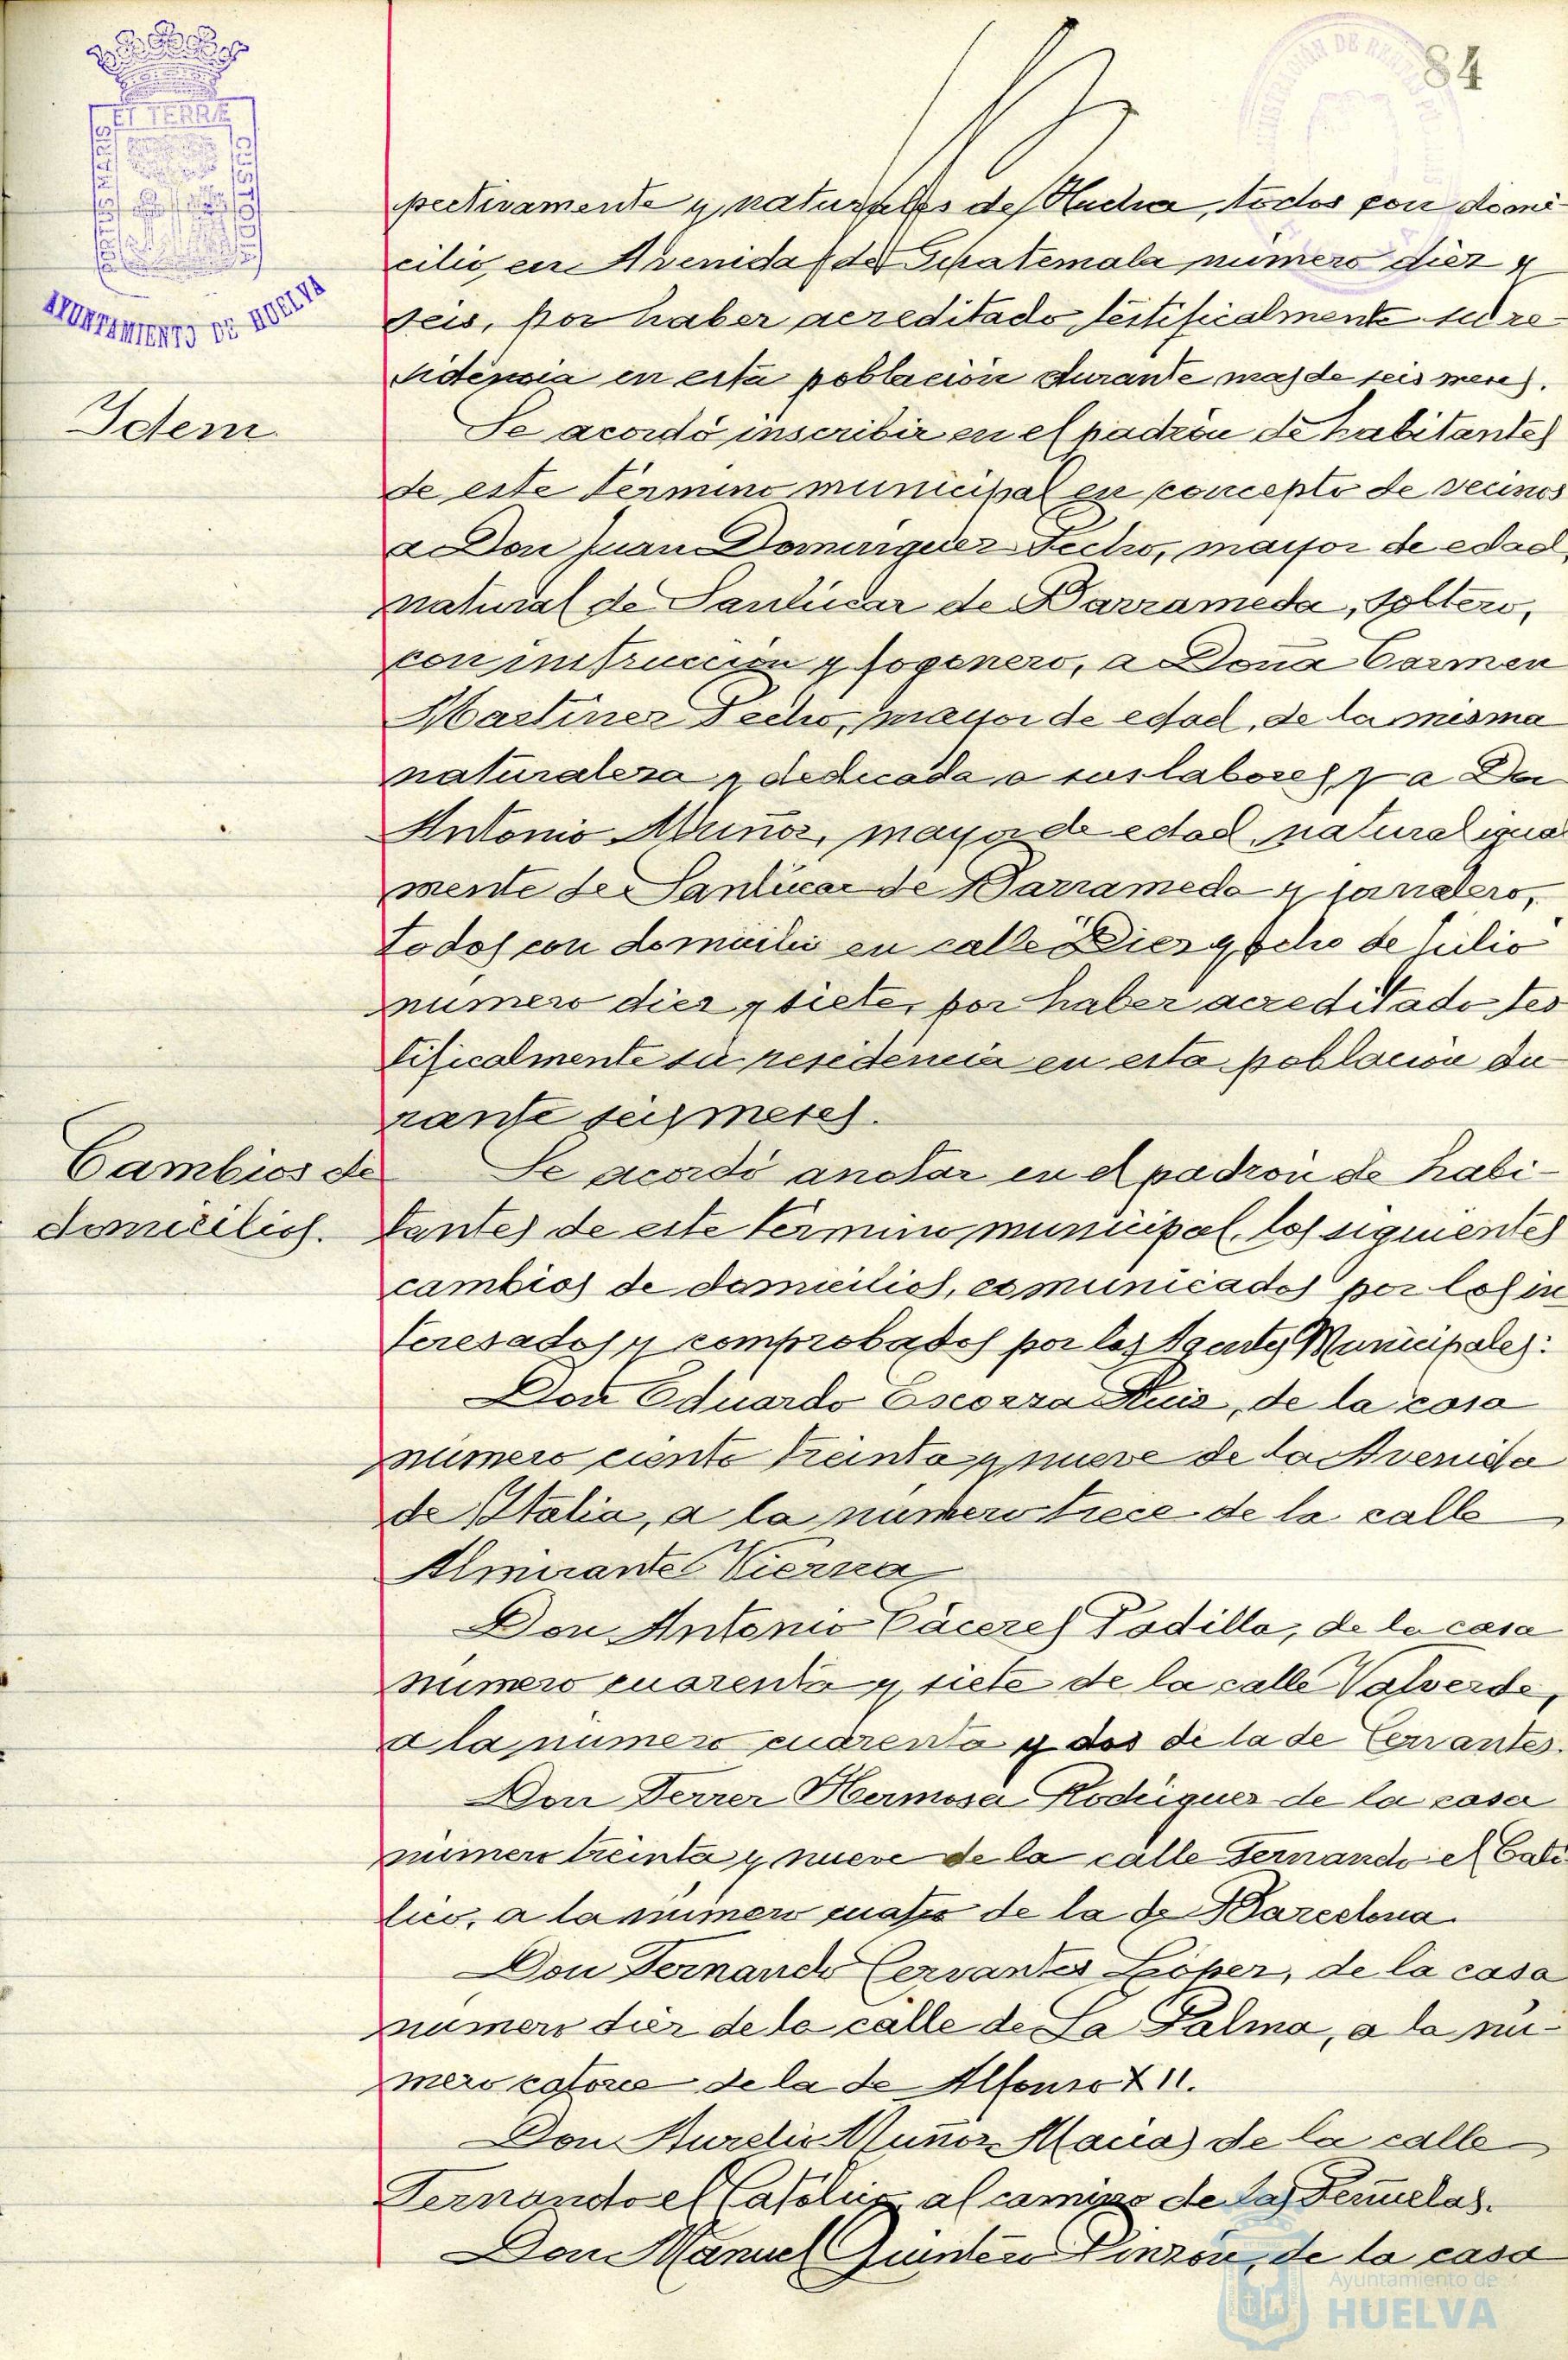 84
ET TERRÆ
AYUNTAMIENTO DE HUELVA
pectivamente y naturales de Huelva, todos con domi-
cilio en Avenida de Guatemala número diez y
seis, por haber acreditado testificalmente su re-
sidencia en esta población durante mas de seis meses.
Idem
Se acordó inscribir en el padrón de habitantes
de este término municipal en concepto de vecinos
a Don Juan Dominguez Pecho, mayor de edad,
natural de Sanlúcar de Barrameda, soltero,
con instrucción y fogonero, a Doña Carmen
Martinez Pecho, mayor de edad, de la misma
naturaleza y dedicada a sus labores y a Don
Antonio Muñoz, mayor de edad, natural igual
mente de Sanlúcar de Barrameda y jornalero,
todos con domicilio en calle "Diez y ocho de Julio"
número diez y siete, por haber acreditado tes
tificalmente su residencia en esta población du-
rante seis meses.
Cambios de
domicilios.
Se acordó anotar en el padrón de habi-
tantes de este término municipal, los siguientes
cambios de domicilios, comunicados por los in
teresados y comprobados por los Agentes Municipales:
Don Eduardo Escorza Ruiz, de la casa
número ciento treinta y nueve de la Avenida
de Italia, a la número trece de la calle
Almirante Vierna
Don Antonio Cáceres Padilla, de la casa
número cuarenta y siete de la calle Valverde,
a la número cuarenta y dos de la de Cervantes.
Don Ferrer Hermosa Rodriguez de la casa
número treinta y nueve de la calle Fernando el Cató
lico, a la número cuatro de la de Barcelona.
Don Fernando Cervantes López, de la casa
número diez de la calle de La Palma, a la nú-
mero catorce de la de Alfonso XII.
Don Aurelio Muñoz Macias de la calle
Fernando el Católico al camino de las Peñuelas.
Don Manuel Quintero Pinzón, de la casa
Ayuntamiento de
HUELVA